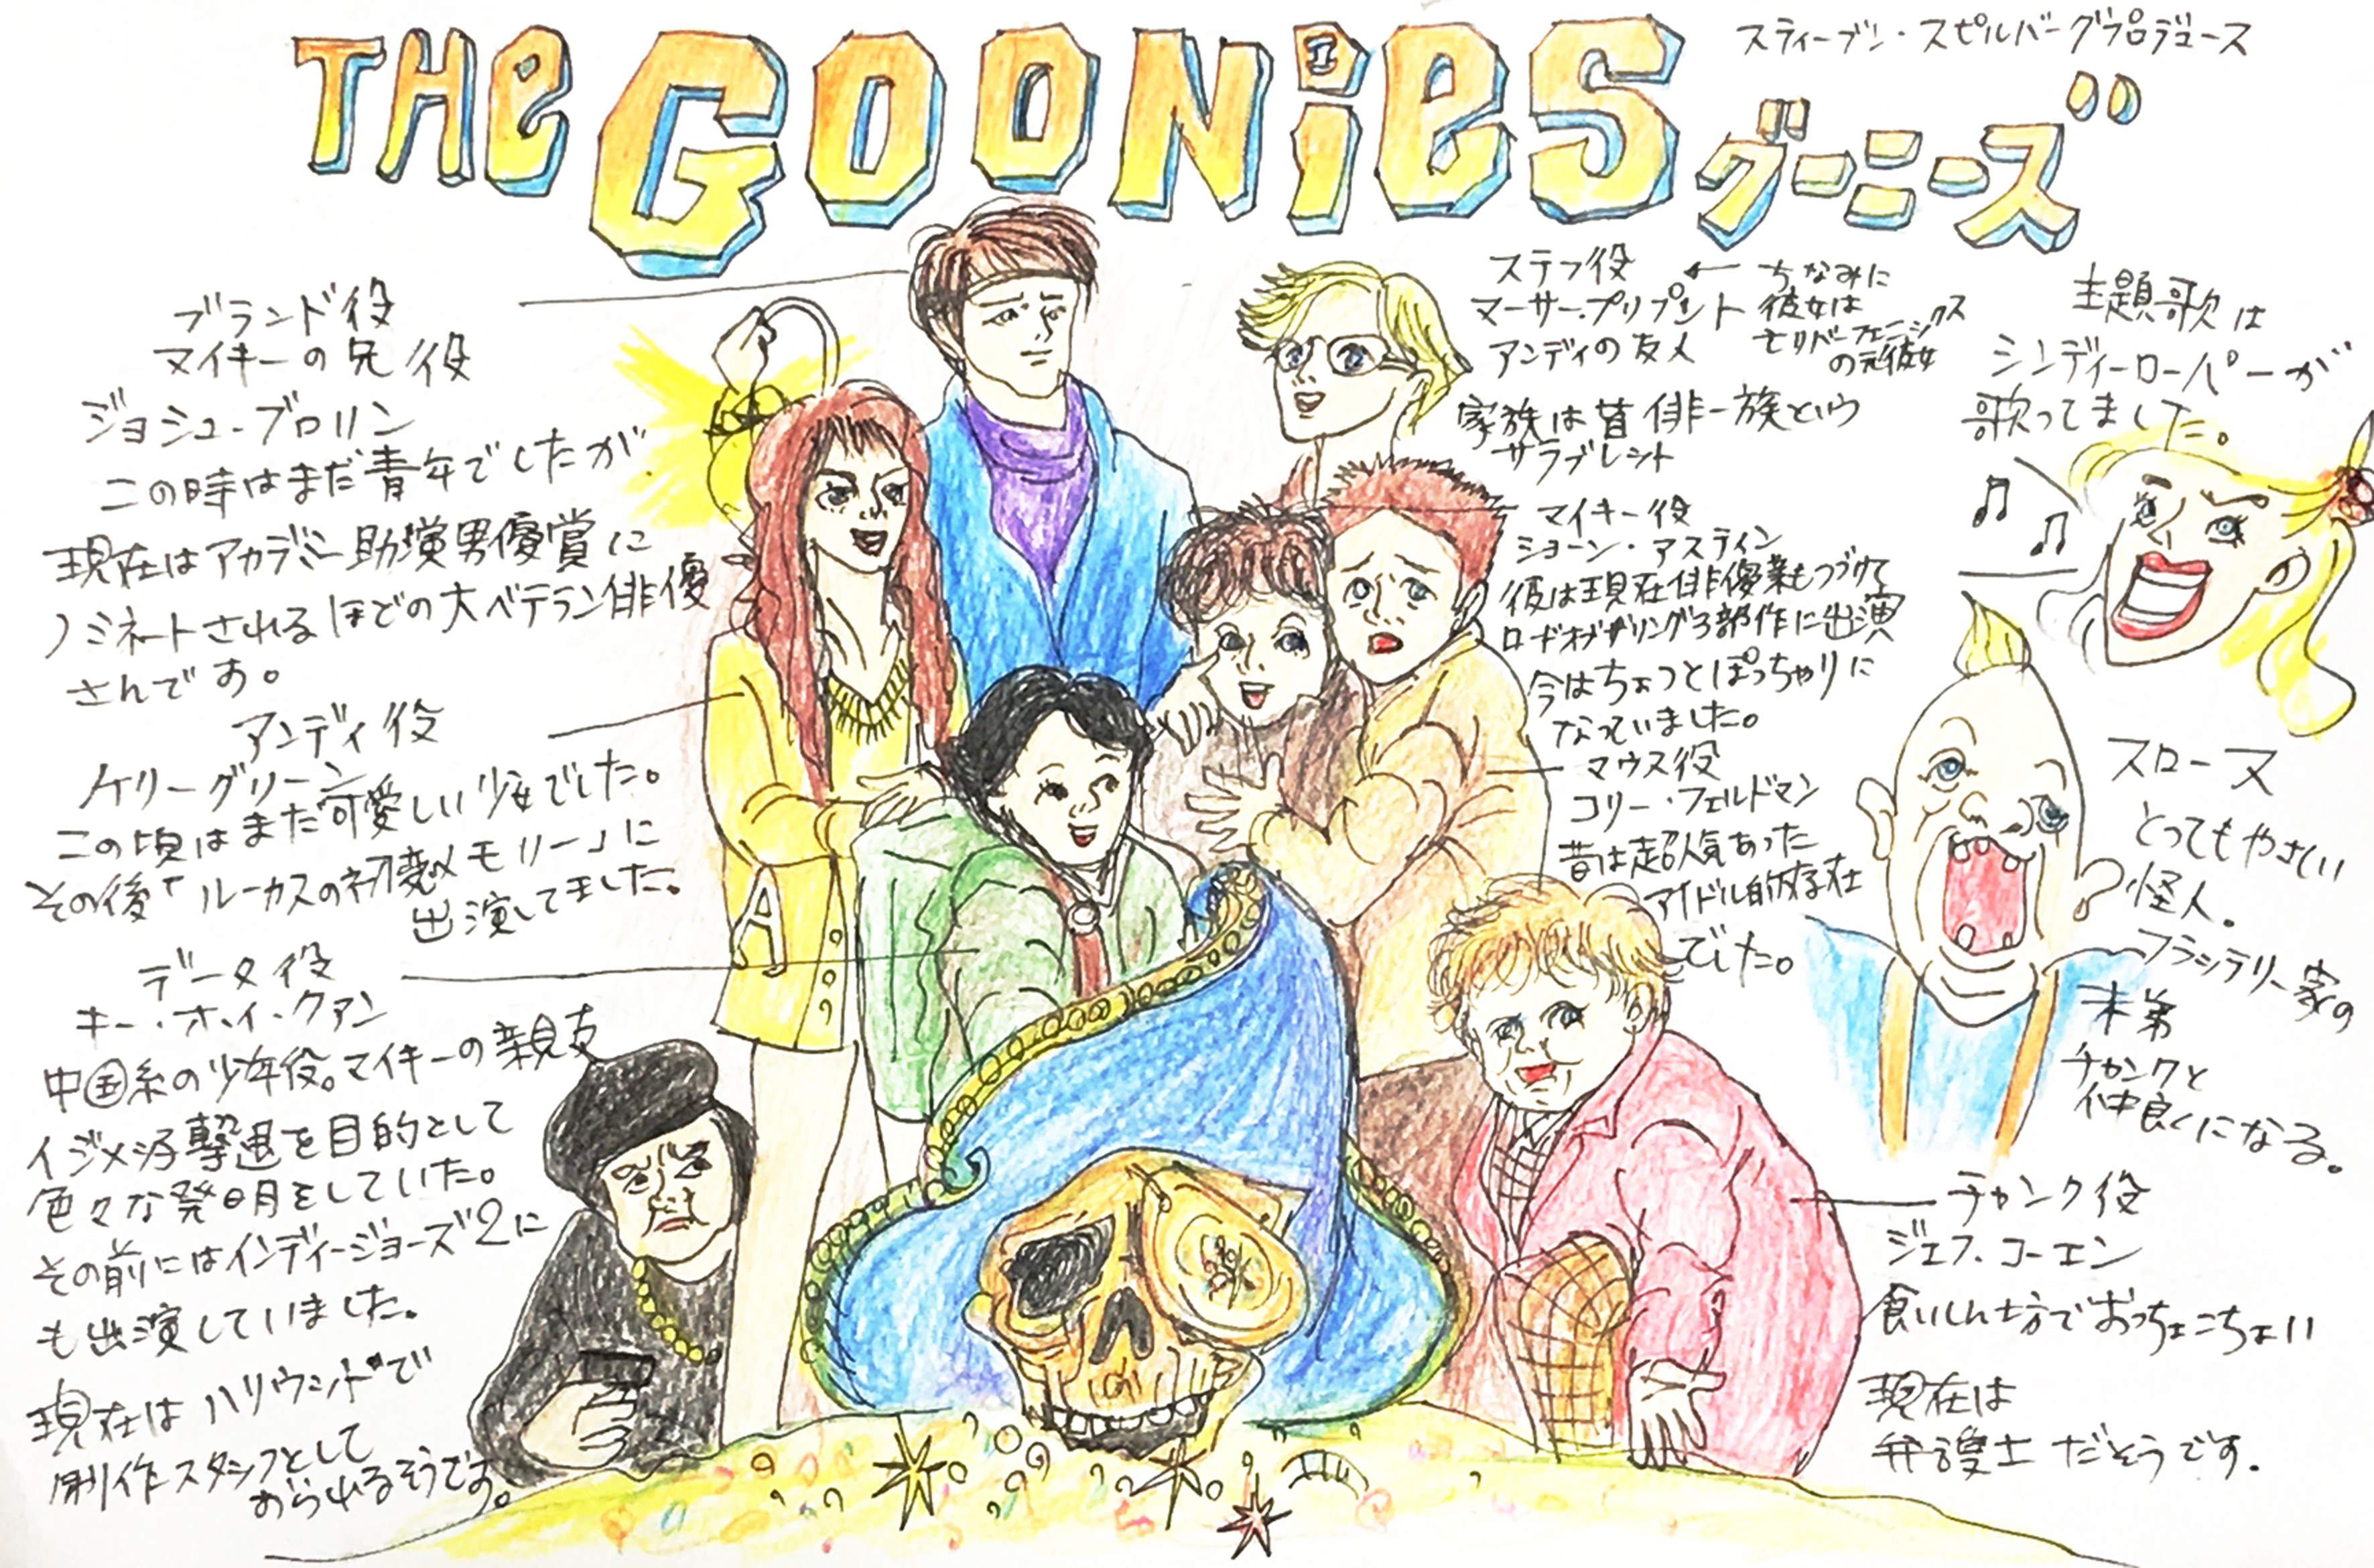 THe GOONieS
スティーブン・スピルバーグプロデュース
グーニーズ
ブランド役
マイキーの兄役
ジョシュ・ブロリン
この時はまだ青年でしたが
現在はアカデミー助演男優賞に
ノミネートされるほどの大ベテラン俳優
さんです。
アンディ役
ケリーグリーン
この頃はまだ可愛しい少女でした。
その後「ルーカスの初恋メモリー」に
出演してました。
データ役
キー・ホイ・クァン
中国系の少年役。マイキーの親友
イジメっ子撃退を目的として
色々な発明をしていた。
その前にはインディージョーズ2に
も出演していました。
現在はハリウッドで
制作スタッフとして
おられるそうです。
ステフ役
マーサー・プリプント
アンディの友人
ちなみに
彼女は
モリバーフェニックス
の元彼女
家族は皆俳一族という
サラブレット
マイキー役
ショーン・アスティン
彼は現在俳優業もつづけて
ロードオブザリング3部作に出演
今はちょっとぽっちゃりに
なっていました。
マウス役
コリー・フェルドマン
昔は超人気あった
アイドル的存在
でした。
主題歌は
シンディーローパーが
歌ってました。
スロース
とってもやさしい
怪人。
フラシテリー家の
末弟
チャンクと
仲良くになる。
チャンク役
ジェフ・コーエン
食いしん坊でおっちょこちょい
現在は
弁護士だそうです.
A